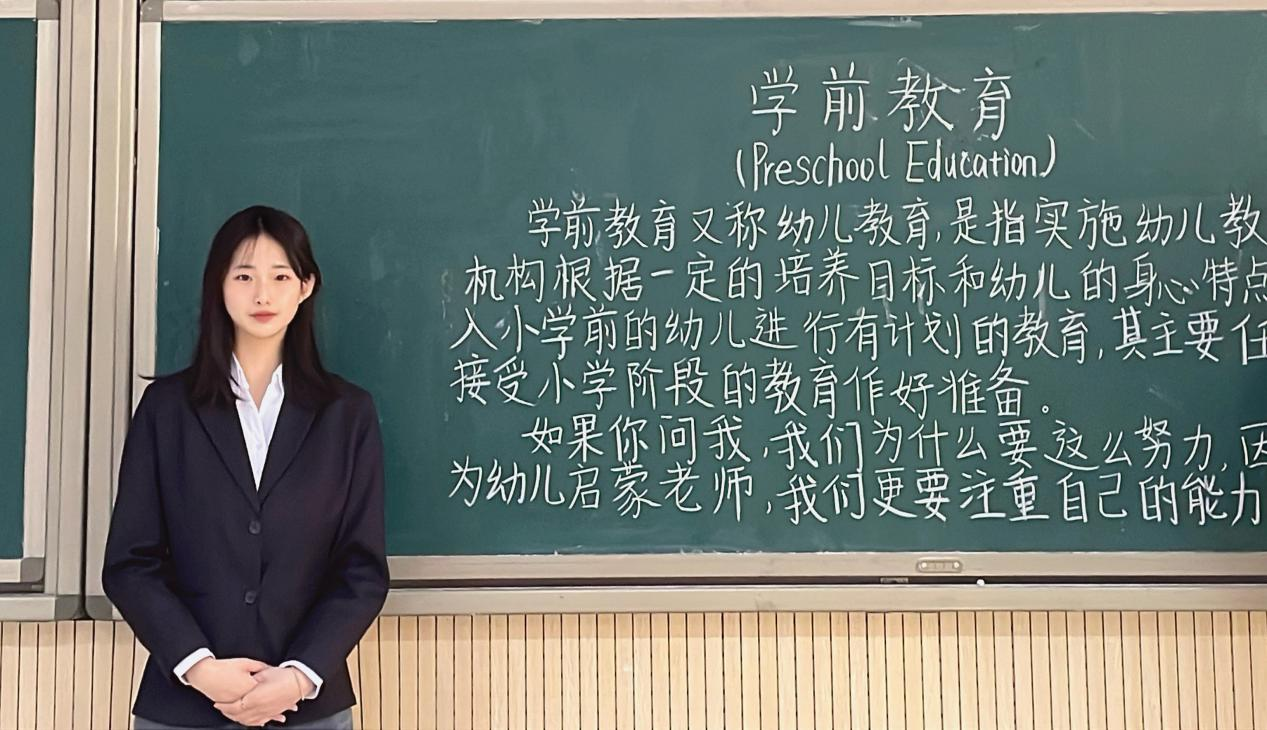 学前教育
(Preschool Education)
学前教育又称幼儿教育,是指实施幼儿教
机构根据一定的培养目标和幼儿的身心特点
入小学前的幼儿进行有计划的教育,其主要任
接受小学阶段的教育作好准备。
如果你问我,我们为什么要这么努力,因
为幼儿启蒙老师,我们更要注重自己的能力